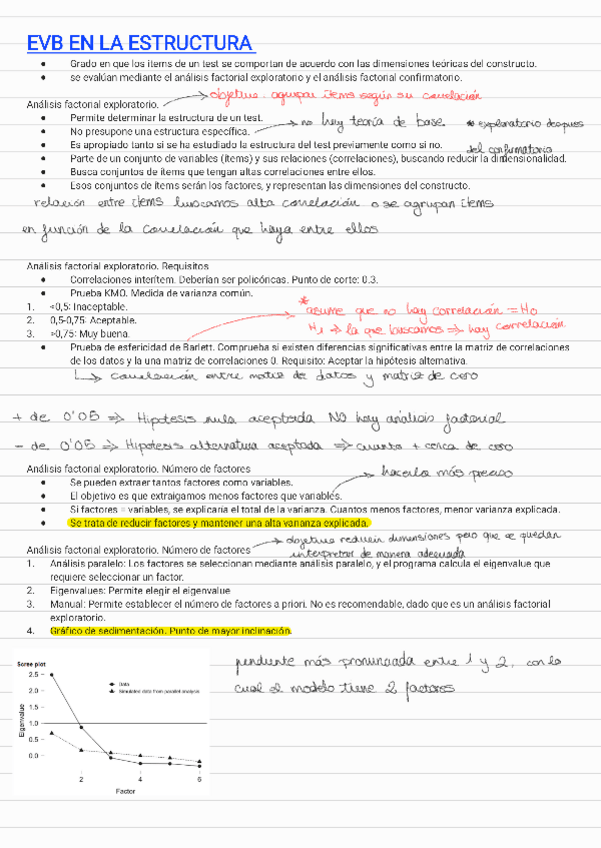 EVB EN LA ESTRUCTURA
● Grado en que los items de un test se comportan de acuerdo con las dimensiones teóricas del constructo.
● se evalúan mediante el análisis factorial exploratorio y el análisis factorial confirmatorio.
objetivo. agrupar items según su correlación
Análisis factorial exploratorio.
● Permite determinar la estructura de un test.
no hay teoría de base
* exploratorio despues del confirmatorio
● No presupone una estructura específica.
● Es apropiado tanto si se ha estudiado la estructura del test previamente como si no.
● Parte de un conjunto de variables (ítems) y sus relaciones (correlaciones), buscando reducir la dimensionalidad.
● Busca conjuntos de ítems que tengan altas correlaciones entre ellos.
● Esos conjuntos de ítems serán los factores, y representan las dimensiones del constructo.
relación entre items buscamos alta correlación o se agrupan items
en función de la correlación que haya entre ellos
Análisis factorial exploratorio. Requisitos
● Correlaciones interítem. Deberían ser policóricas. Punto de corte: 0.3.
● Prueba KMO. Medida de varianza común.
1. <0,5: Inaceptable.
2. 0,5-0,75: Aceptable.
3. >0,75: Muy buena.
* asume que no hay correlación = Ho
H1 → la que buscamos → hay correlación
● Prueba de esfericidad de Barlett. Comprueba si existen diferencias significativas entre la matriz de correlaciones
de los datos y la una matriz de correlaciones 0. Requisito: Aceptar la hipótesis alternativa.
correlación entre matriz de datos y matriz de cero
+ de 0'05 ⇒ Hipotesis nula aceptada NO hay análisis factorial
- de 0'05 ⇒ Hipotesis alternativa aceptada ⇒ cuanto + cerca de cero
Análisis factorial exploratorio. Número de factores
hacerlo más preciso
● Se pueden extraer tantos factores como variables.
● El objetivo es que extraigamos menos factores que variables.
● Si factores = variables, se explicaría el total de la varianza. Cuantos menos factores, menor varianza explicada.
● Se trata de reducir factores y mantener una alta varianza explicada.
objetivo reducir dimensiones pero que se puedan
interpretar de manera adecuada
Análisis factorial exploratorio. Número de factores
1. Análisis paralelo: Los factores se seleccionan mediante análisis paralelo, y el programa calcula el eigenvalue que
requiere seleccionar un factor.
2. Eigenvalues: Permite elegir el eigenvalue
3. Manual: Permite establecer el número de factores a priori. No es recomendable, dado que es un análisis factorial
exploratorio.
4. Gráfico de sedimentación. Punto de mayor inclinación.
pendiente más pronunciada entre 1 y 2, con lo
cual el modelo tiene 2 factores
Scree plot
Data
Simulated data from parallel analysis
Eigenvalue
2.5
2.0
1.5
1.0
0.5
0.0
2 4 6
Factor